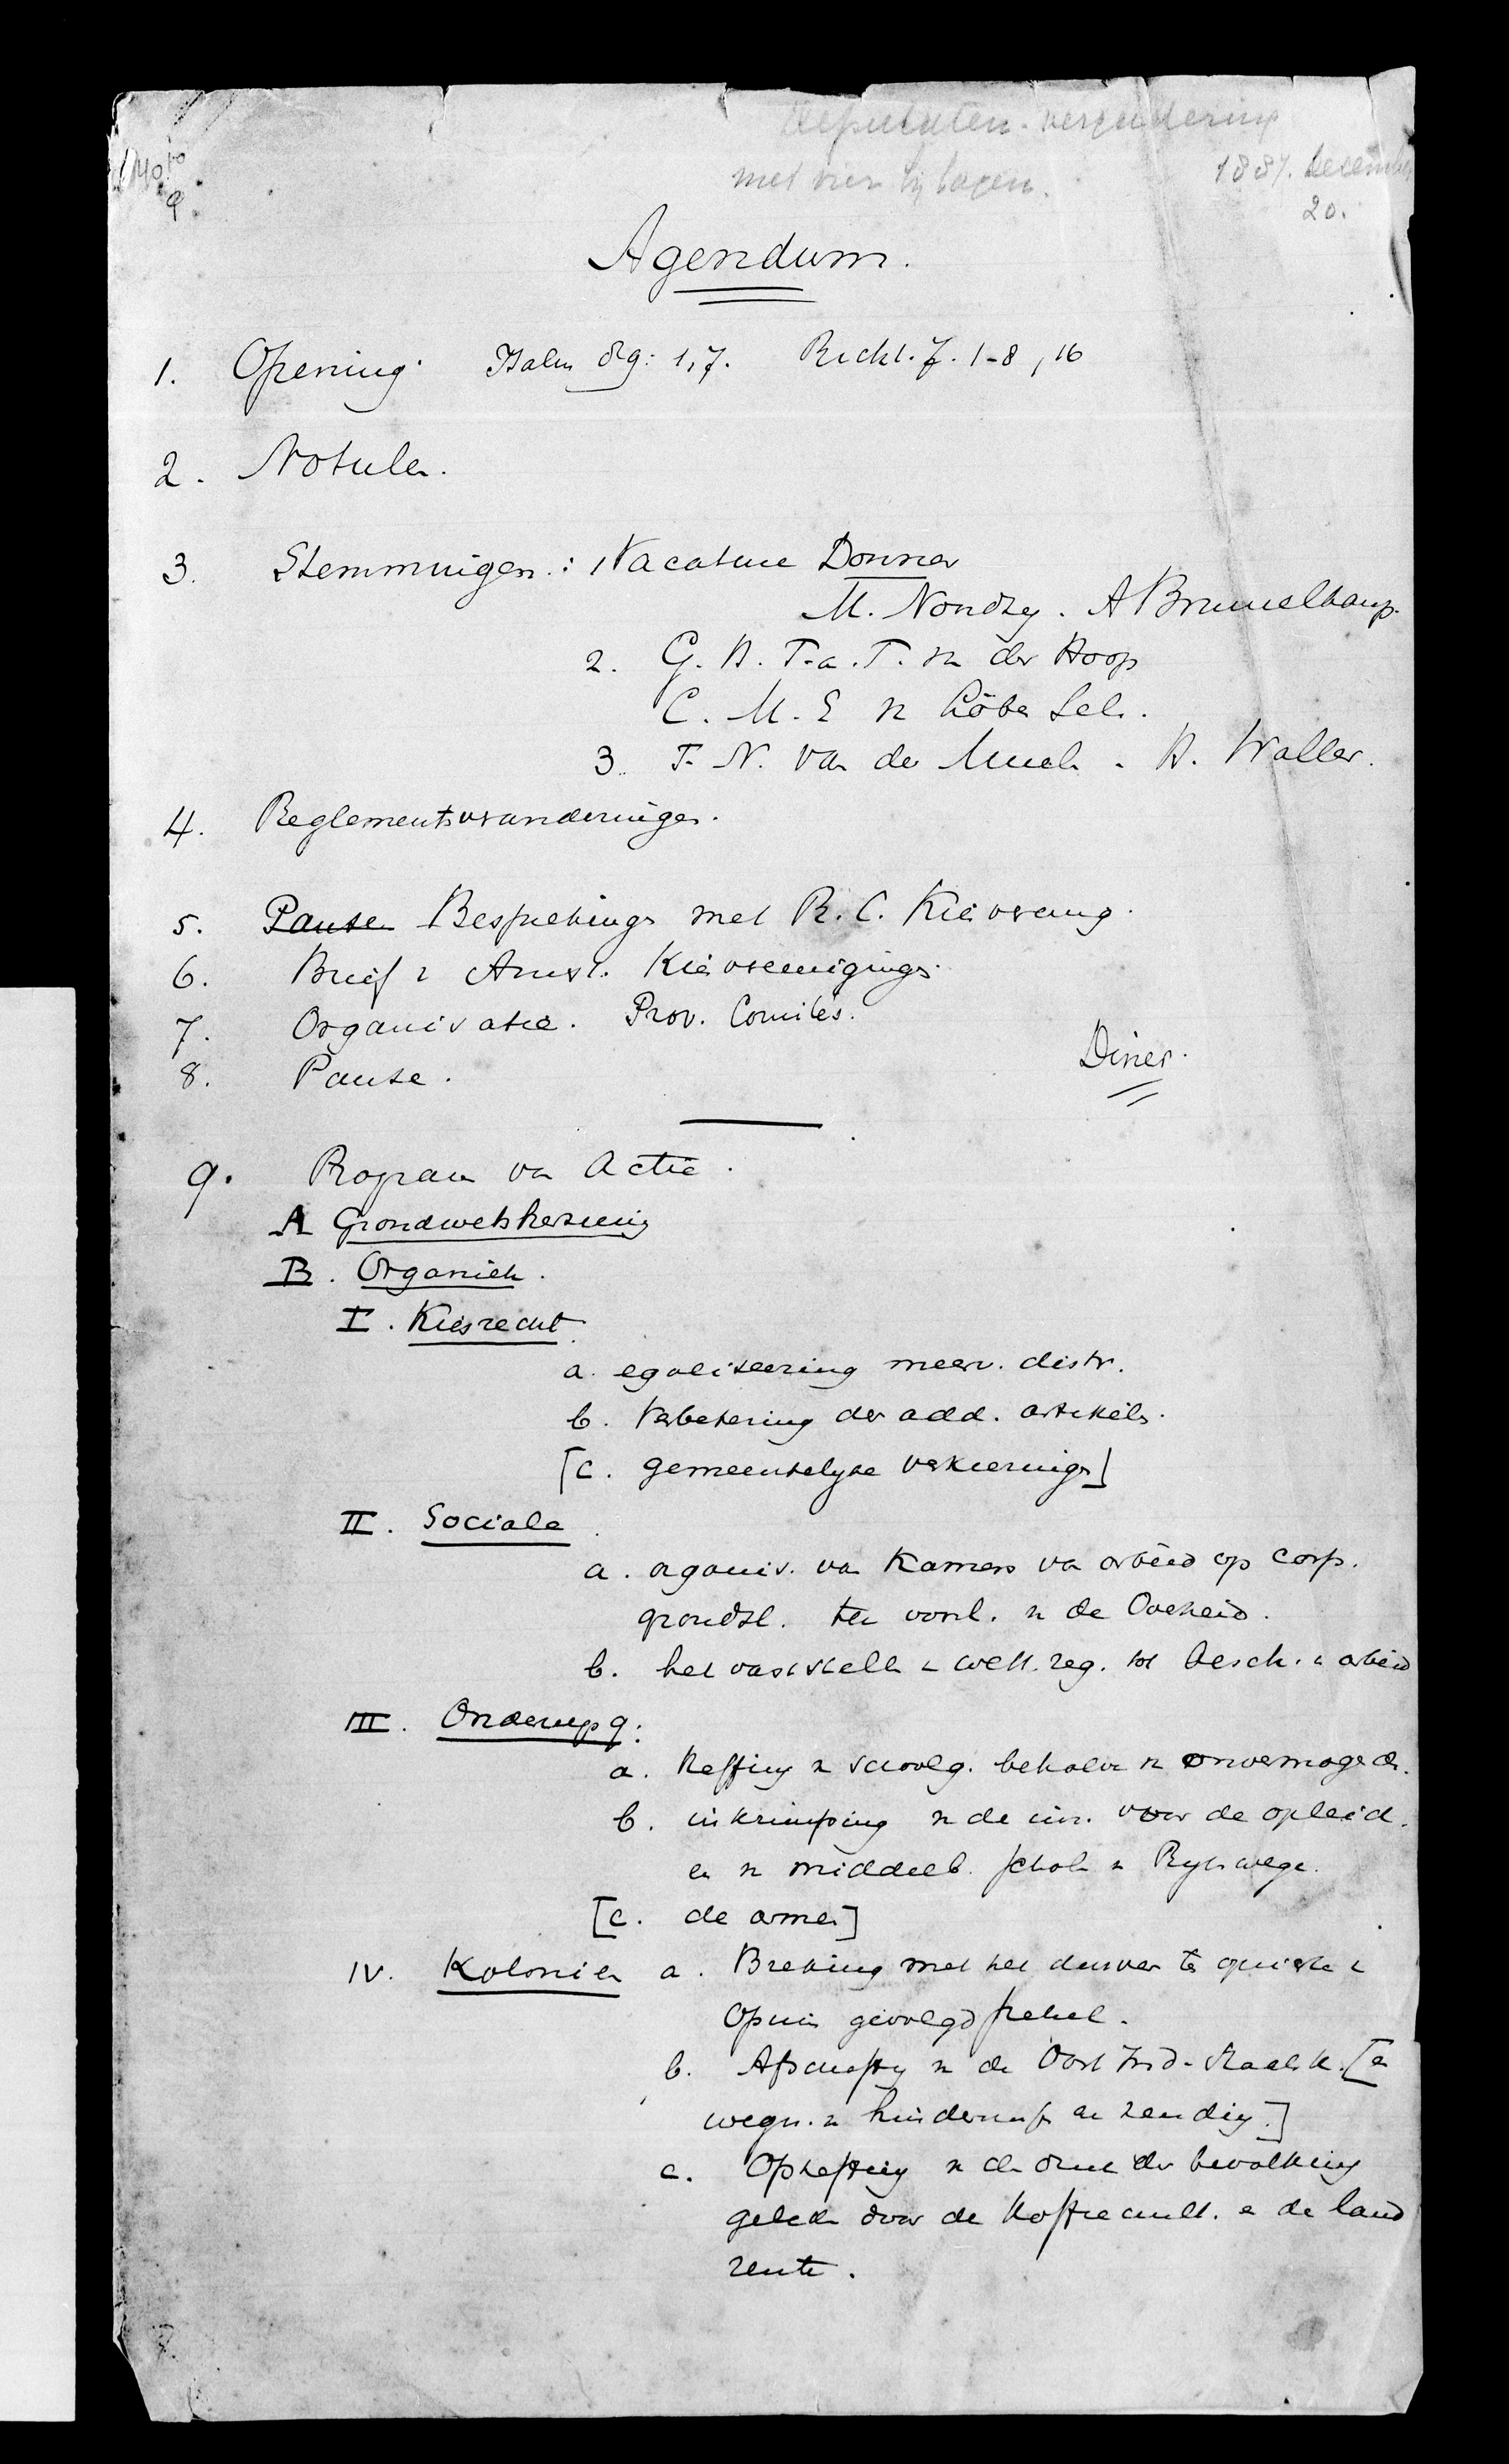 Deputaten-vergadering
met vier bijlagen.
1887. December
20.
Agendum.
1. Opening. Psalm 89: 1,7. Richt. 7. 1-8, 16
2. Notulen.
3. Stemmingen: Vacature Donner
M. Noordtzy. A Brummelkamp.
2. G. H. T. a. T. v der Hoop
C. M. E v Löben Sels.
3. T. N. van der - H. Waller.
4. Reglementsveranderingen.
5. Pause Besprekingen met R. C. Kiesvereenig.
6. Brief v Amst. Kiesvereenigingen.
7. Organisatie. Prov. Comités.
8. Pause. Diner.
9. Program van Actie.
A Grondwetsherziening
B. Organiek.
I. Kiesrecht
a. egaliseering meerv. distr.
b. Verbetering der add. artikels.
[c. gemeentelyke verkiezingen]
II. Sociale
a. organis. van Kamers van arbeid op corp.
grondsl. ter voorl. v de Overheid.
b. het vaststell v wett. reg. tot besch. v arbeid
III. Onderwys
a. Heffing v schoolg. behalve v onvermogenden.
b. inkrimping v de inr. voor de opleid.
en v middelb. schol v Rykswege.
[c. de armen]
IV. Koloniën a. Breking met het dusver te opzichte v
Opium gevolgd stelsel.
b. Afschaffing v de Oost Ind. Staatsk. [en
wegn. v hindernissen zending.]
c. Opheffing v de druk der bevolking
geleden door de Koffiecult. en de land
rente.